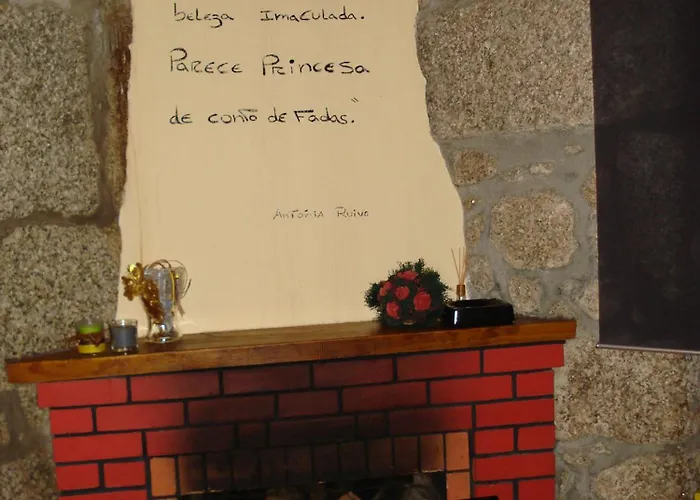 beleza Imaculada.
Parece Princesa
de conto de Fadas."
Antónia Ruivo